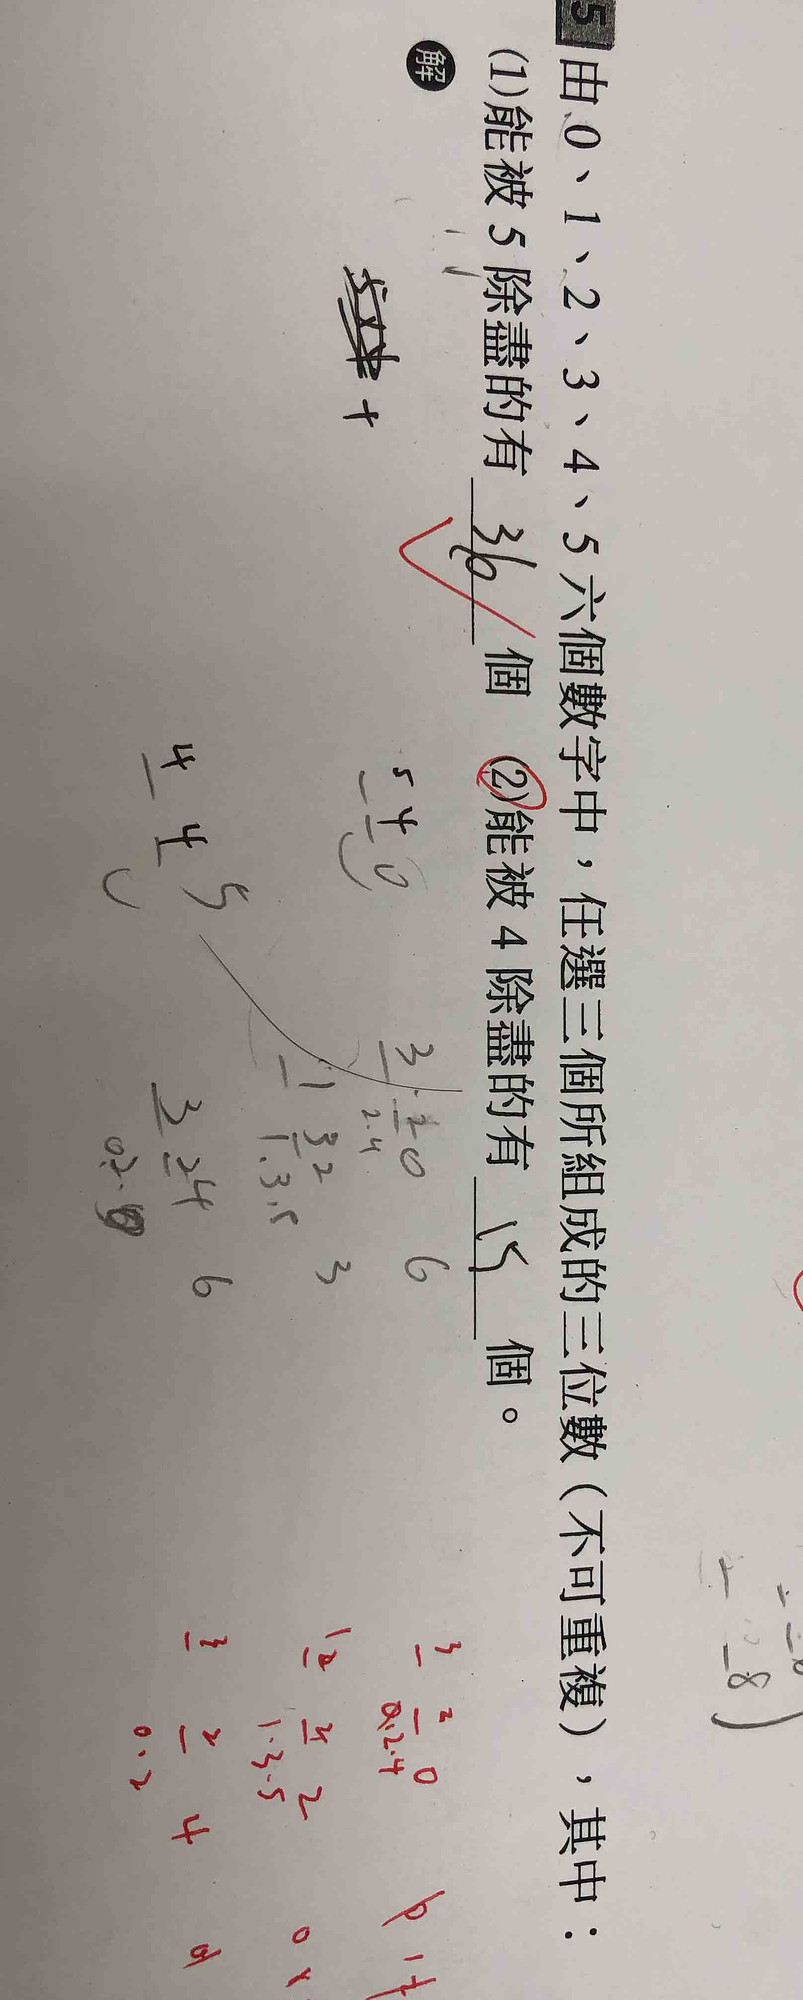 5 由 0、1、2、3、4、5 六個數字中，任選三個所組成的三位數（不可重複），其中：
(1)能被 5 除盡的有 36 個 (2)能被 4 除盡的有 15 個。
解
5 4 0
4 4 5
3 2 0 6
2.4
1 3 2 3
1.3.5
3 2 4 6
3 2 0
0.2.4
1.3.5
3 2 4
0.2
8